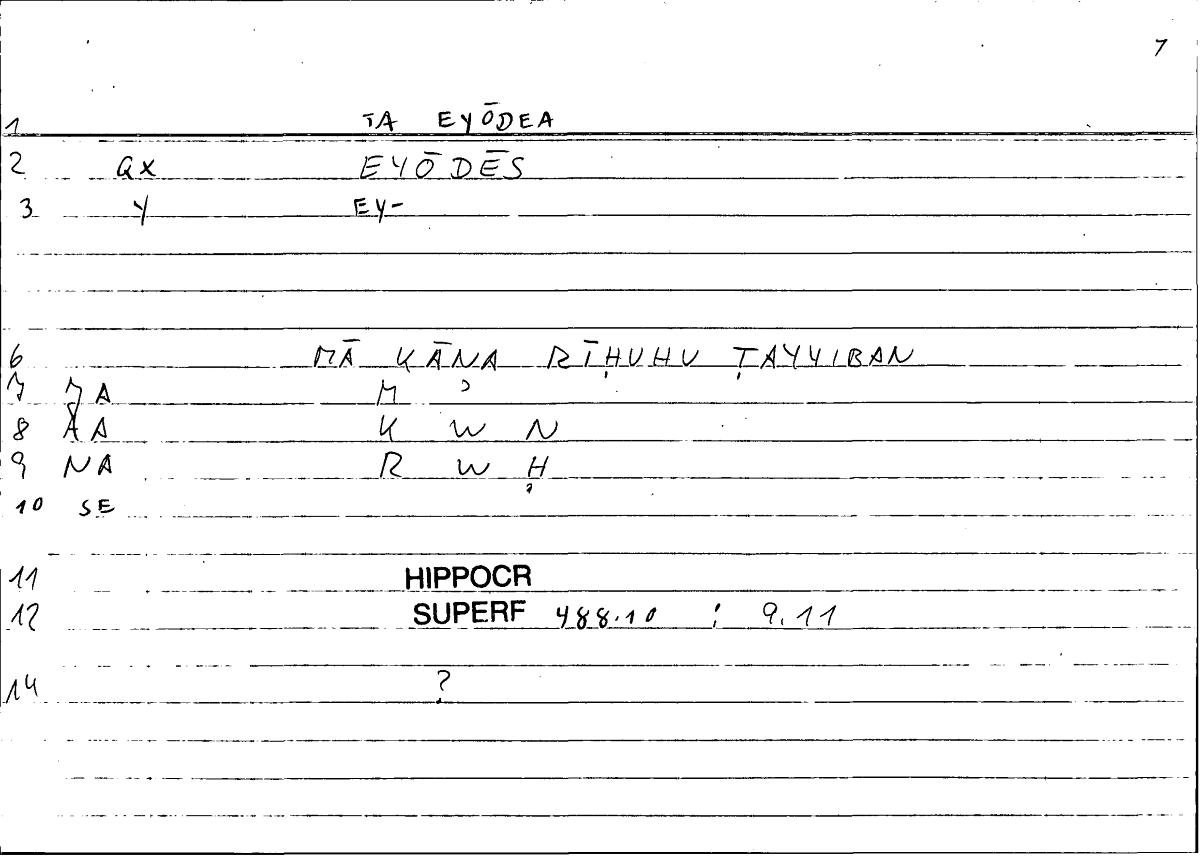 7
1 TA EYŌDEA
2 QX EYŌDĒS
3 Y EY-
6 MĀ KĀNA RĪḤUHU ṬAYYIBAN
7 MA M ʾ
8 AA K W N
9 NA R W Ḥ
10 SE
11 HIPPOCR
12 SUPERF 488.10 ; 9.11
14 ?